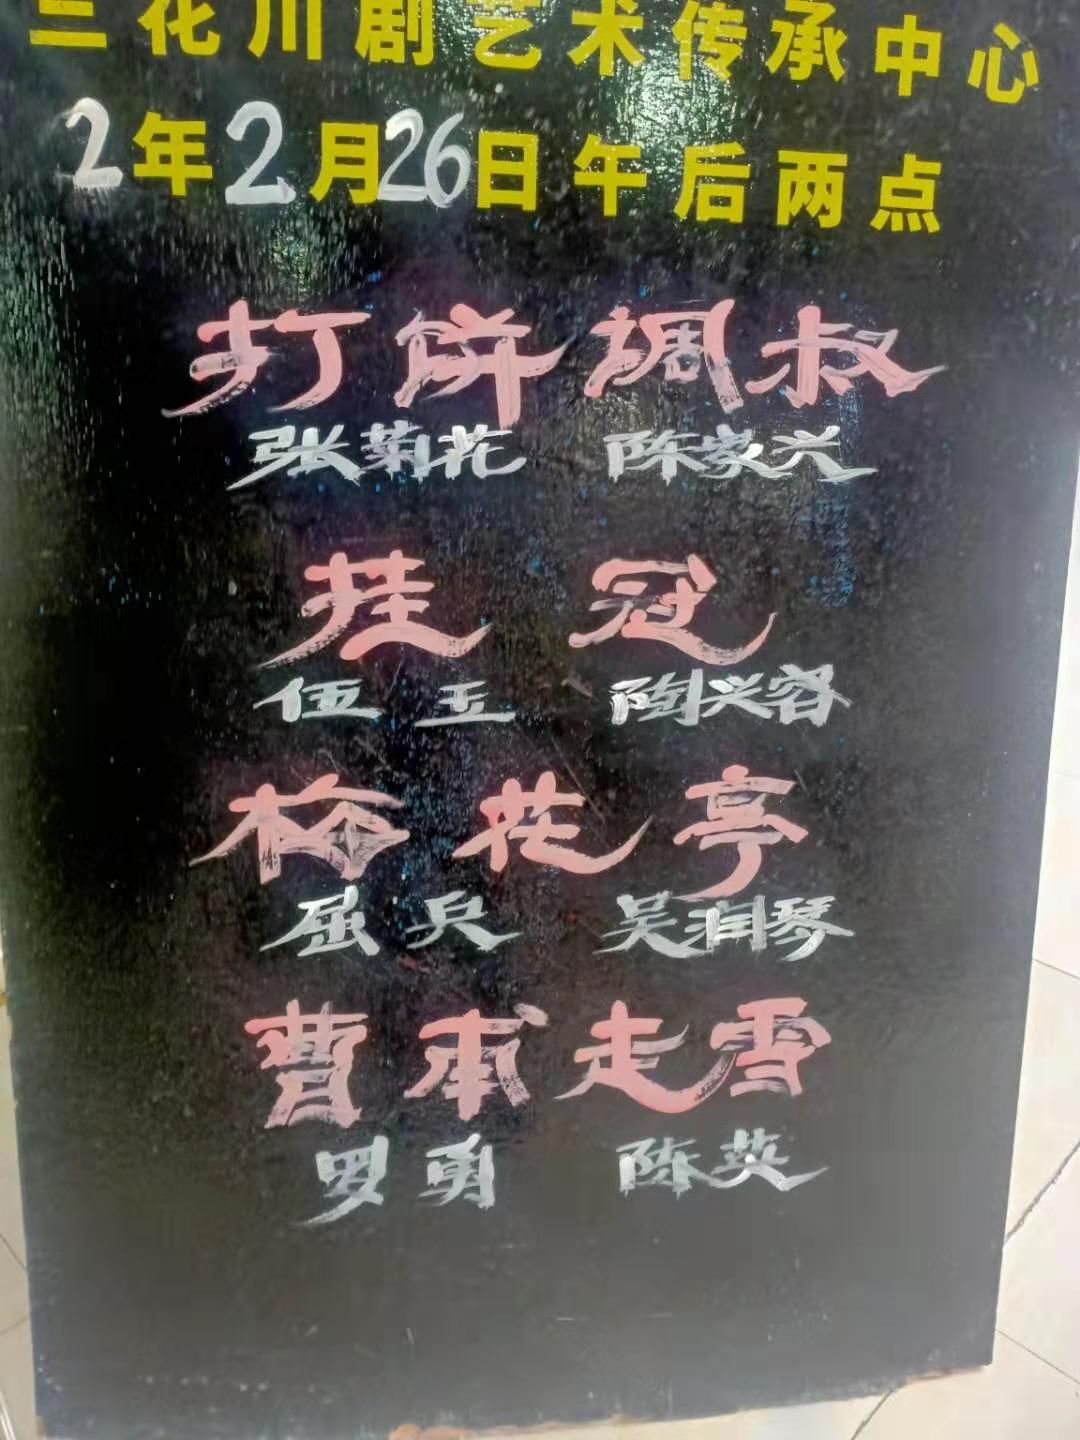 三花川剧艺术传承中心
2年2月26日午后两点
打饼调叔
张菊花 陈家兴
挂冠
伍玉 陶兴容
梅花亭
屈兵 吴润琴
曹甫走雪
罗勇 陈英